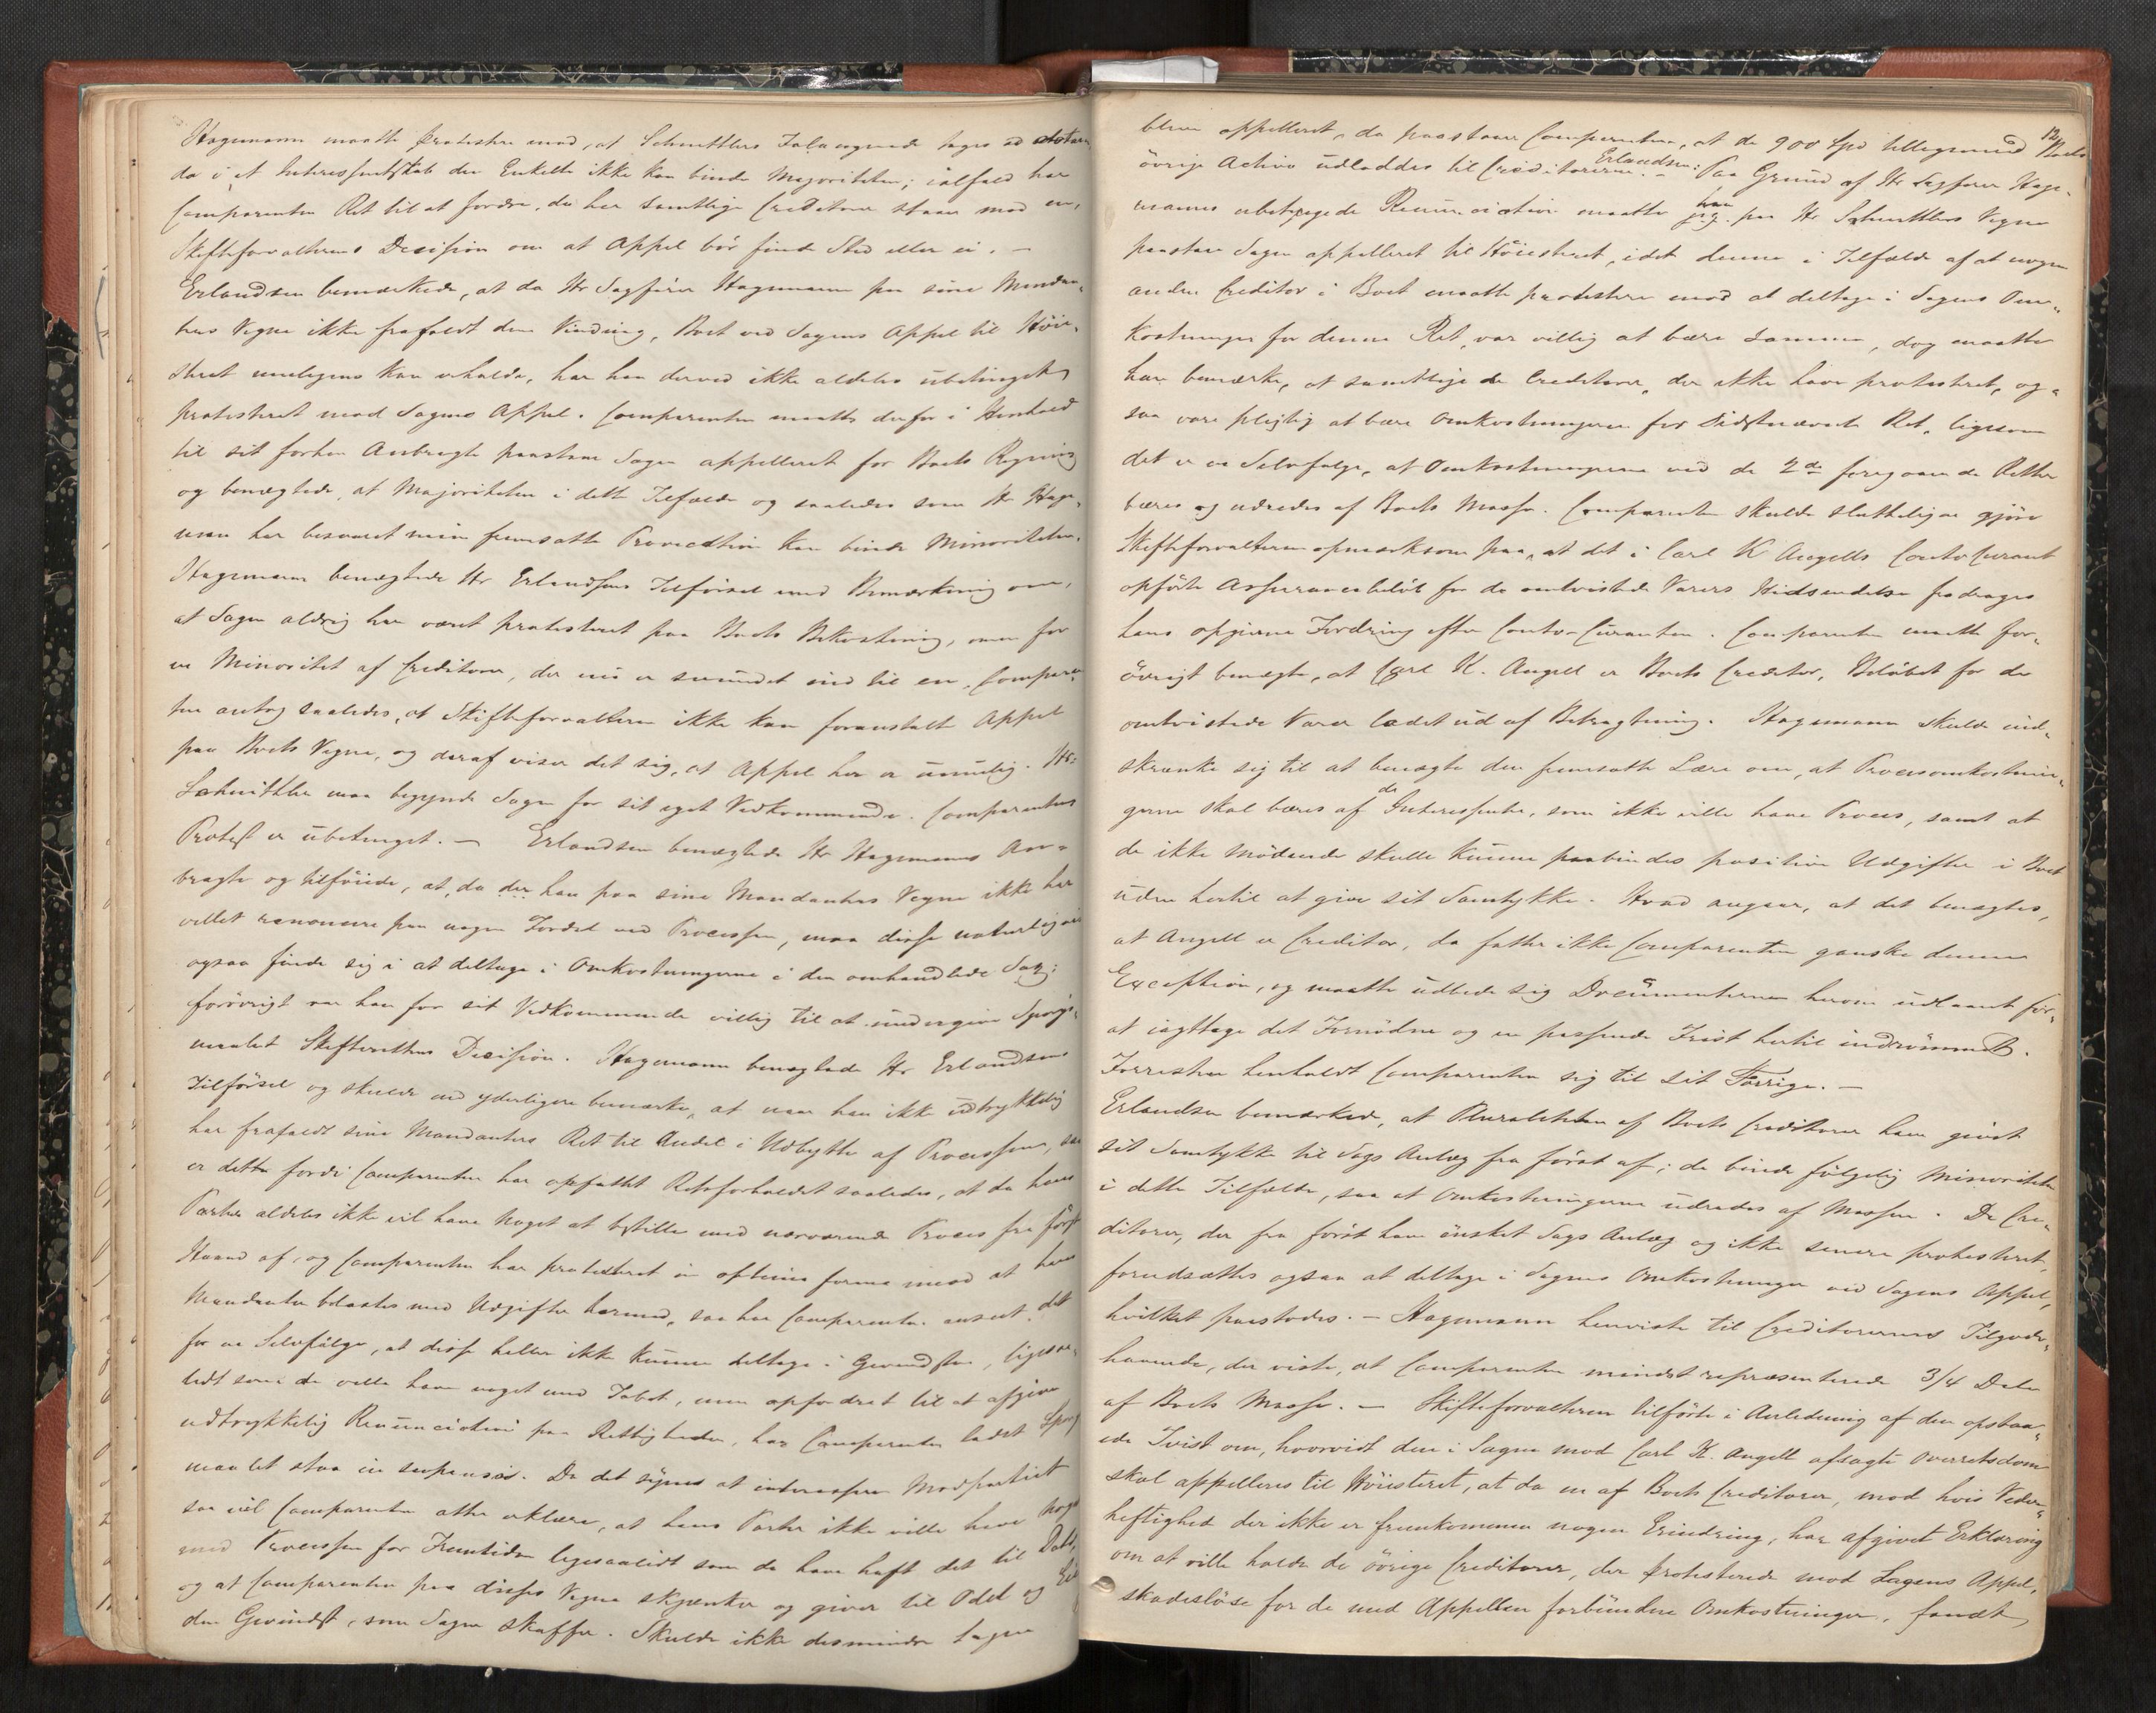 Hagemann maatte protestere mod, at Schnittlers Formeende tages ad notam
da i et Interessentskab den Enkelte ikke kan binde Majoriteten; ialfald har
Comparenten Ret til at fordre, da her samtlige Creditorer staar mod en,
Skifteforvalterens Decision om at Appel bör finde Sted eller ei. —
Erlandsen bemærkede, at da Hr Sagförer Hagemann paa sine Mandan-
ters Vegne ikke frafaldt den Vinding, Boet ved Sagens Appel til Höie-
steret muligens kan erholde, har han derved ikke aldeles übetinget
protesteret mod Sagens Appel. Comparenten maatte derfor i Henhold
til sit forhen Anbragte paastaae Sagen appelleret for Boets Regning
og benægtede, at Majoriteten i dette Tilfælde og saaledes som Hr Hage-
man har besvaret min fremsatte Provocation kan binde Minoriteten.
Hagemann benægtede Hr Erlandsens Tilförsel med Bemærkning om,
at Sagen aldrig har været protesteret paa Boets Bekostning, men for
en Minoritet af Creditorer, der nü er svundet ind til en, Comparen-
ten antog saaledes, at Skifteforvalteren ikke kan foranstalte Appel
paa Boets Vegne, og deraf viser det sig, at Appel her er ümulig. Hr:
Schnittler maa begynde Sagen for sit eget Vedkommende. Comparentens
Protest er übetinget. — Erlandsen benægtede Hr Hagemanns An-
bragte og tilföiede, at, da der han paa sine Mandanters Vegne ikke har
villet renoncere paa nogen Fordel ved Processen, maa disse naturligviis
ogsaa finde sig i at deltage i Omkostningerne i den omhandlede Sag;
forövrigt var han for sit Vedkommende villig til at undergive Spörgs-
maalet Skifterettens Decision. Hagemann benægtede Hr Erlandsens
Tilförsel og skulde end yderligere bemærke, at naar han ikke üdtrykkelig
har frafaldt sine Mandanters Ret til Andel i Udbytte af Processen, saa
er dette fordi Comparenten har opfattet Retsforholdet saaledes, at da hans
Parter aldeles ikke vil have Noget at bestille med nærværende Proces fra först
Haand af, og Comparenten har protesteret in optima forma imod at hans
Mandanter belastes med Udgifter hermed, saa har Comparenten anseet det
for en Selvfölge, at disse heller ikke kunne deltage i Gevindsten, ligesaa-
lidt som de ville have noget med Tabet, men opfordret til at afgive
udtrykkelig Renünciation paa Rettigheder, har Comparenten ladet Spörgs-
maalet staa in suspenso. Da det synes at interessere Modpartiet
saa vil Comparenten atter erklære, at hans Parter ikke ville have noget
med Processen for Fremtiden ligesaalidt som de have haft det til Dato,
og at Comparenten paa disses Vegne skjænker og giver til Odel og Eie
den Gevindst, som Sagen skaffer. Skulde ikke desmindre Sagen
12
blive appelleret, da paastaaer Comparenten, at de 900 Spd tilligemed Boets
övrige Activa üdloddes til Creditorerne. — Erlandsen: Paa Grund af Hr Sagförer Hage-
manns ubetingede Renünciation maatte han paa Hr Schnittlers Vegne
paastaae Sagen appelleret til Höiesteret, idet denne i Tilfælde af at nogen
anden Creditor i Boet maatte protestere mod at deltage i Sagens Om-
kostninger for denne Ret, var villig at bære samme, dog maatte
han bemærke, at samtlige de Creditorer, der ikke have protesteret, og-
saa vare pligtig at bære Omkostningerne for sidstnævnte Ret, ligesom
det er en Selvfölge, at Omkostningerne ved de 2de foregaaende Retter
bæres og udredes af Boets Masse. Comparenten skulde slutteligen gjöre
Skifteforvalteren opmærksom paa, at det i Carl K Angells Conto Curant
opförte Assurancebelöb for de omtvistede Varers Hidsendelse fradrages
hans opgivne Fordring efter Conto-Curanten. Comparenten maatte for-
övrigt benægte, at Carl K. Angell er Boets Creditor, Belöbet for de
omtvistede Varer ladet ud af Betragtning. Hagemann skulde ind-
skrænke sig til at benægte den fremsatte Lære om, at Procesomkostnin-
gerne skal bæres af de Interessenter, som ikke ville have Proces, samt at
de ikke mödende skulle kunne paabindes positive Udgifter i Boet
uden hertil at give sit Samtykke. Hvad angaar, at det benægtes,
at Angell er Creditor, da fatter ikke Comparenten ganske denne
Exception, og maatte üdbede sig Documenterne herom udlaant for
at iagttage det Fornödne og en passende Frist hertil indrömmet.
Forresten henholdt Comparenten sig til sit Forrige. —
Erlandsen bemærkede, at Pluraliteten af Boets Creditorer have givet
sit Samtykke til Sags Anlæg fra först af; de binde fölgelig Minoriteten
i dette Tilfælde, saa at Omkostningerne udredes af Massen. De Cre-
ditorer, der fra först have önsket Sags Anlæg og ikke senere protesteret,
forudsættes ogsaa at deltage i Sagens Omkostninger ved Sagens Appel,
hvilket paastodes. — Hagemann henviste til Creditorernes Tilgode-
havende, der viste, at Comparenten mindst repræsenterede 3/4 Dele
af Boets Masse. — Skifteforvalteren tilförte i Anledning af den opstaa-
ede Tvist om, hvorvidt den i Sagen mod Carl K. Angell afsagte Overretsdom
skal appelleres til Höiesteret, at da en af Boets Creditorer, mod hvis Veder-
heftighed der ikke er fremkommen nogen Erindring, har afgivet Erklæring
om at ville holde de övrige Creditorer, der protesterede mod Sagens Appel,
skadeslöse for de med Appellen forbündne Omkostninger, fandt